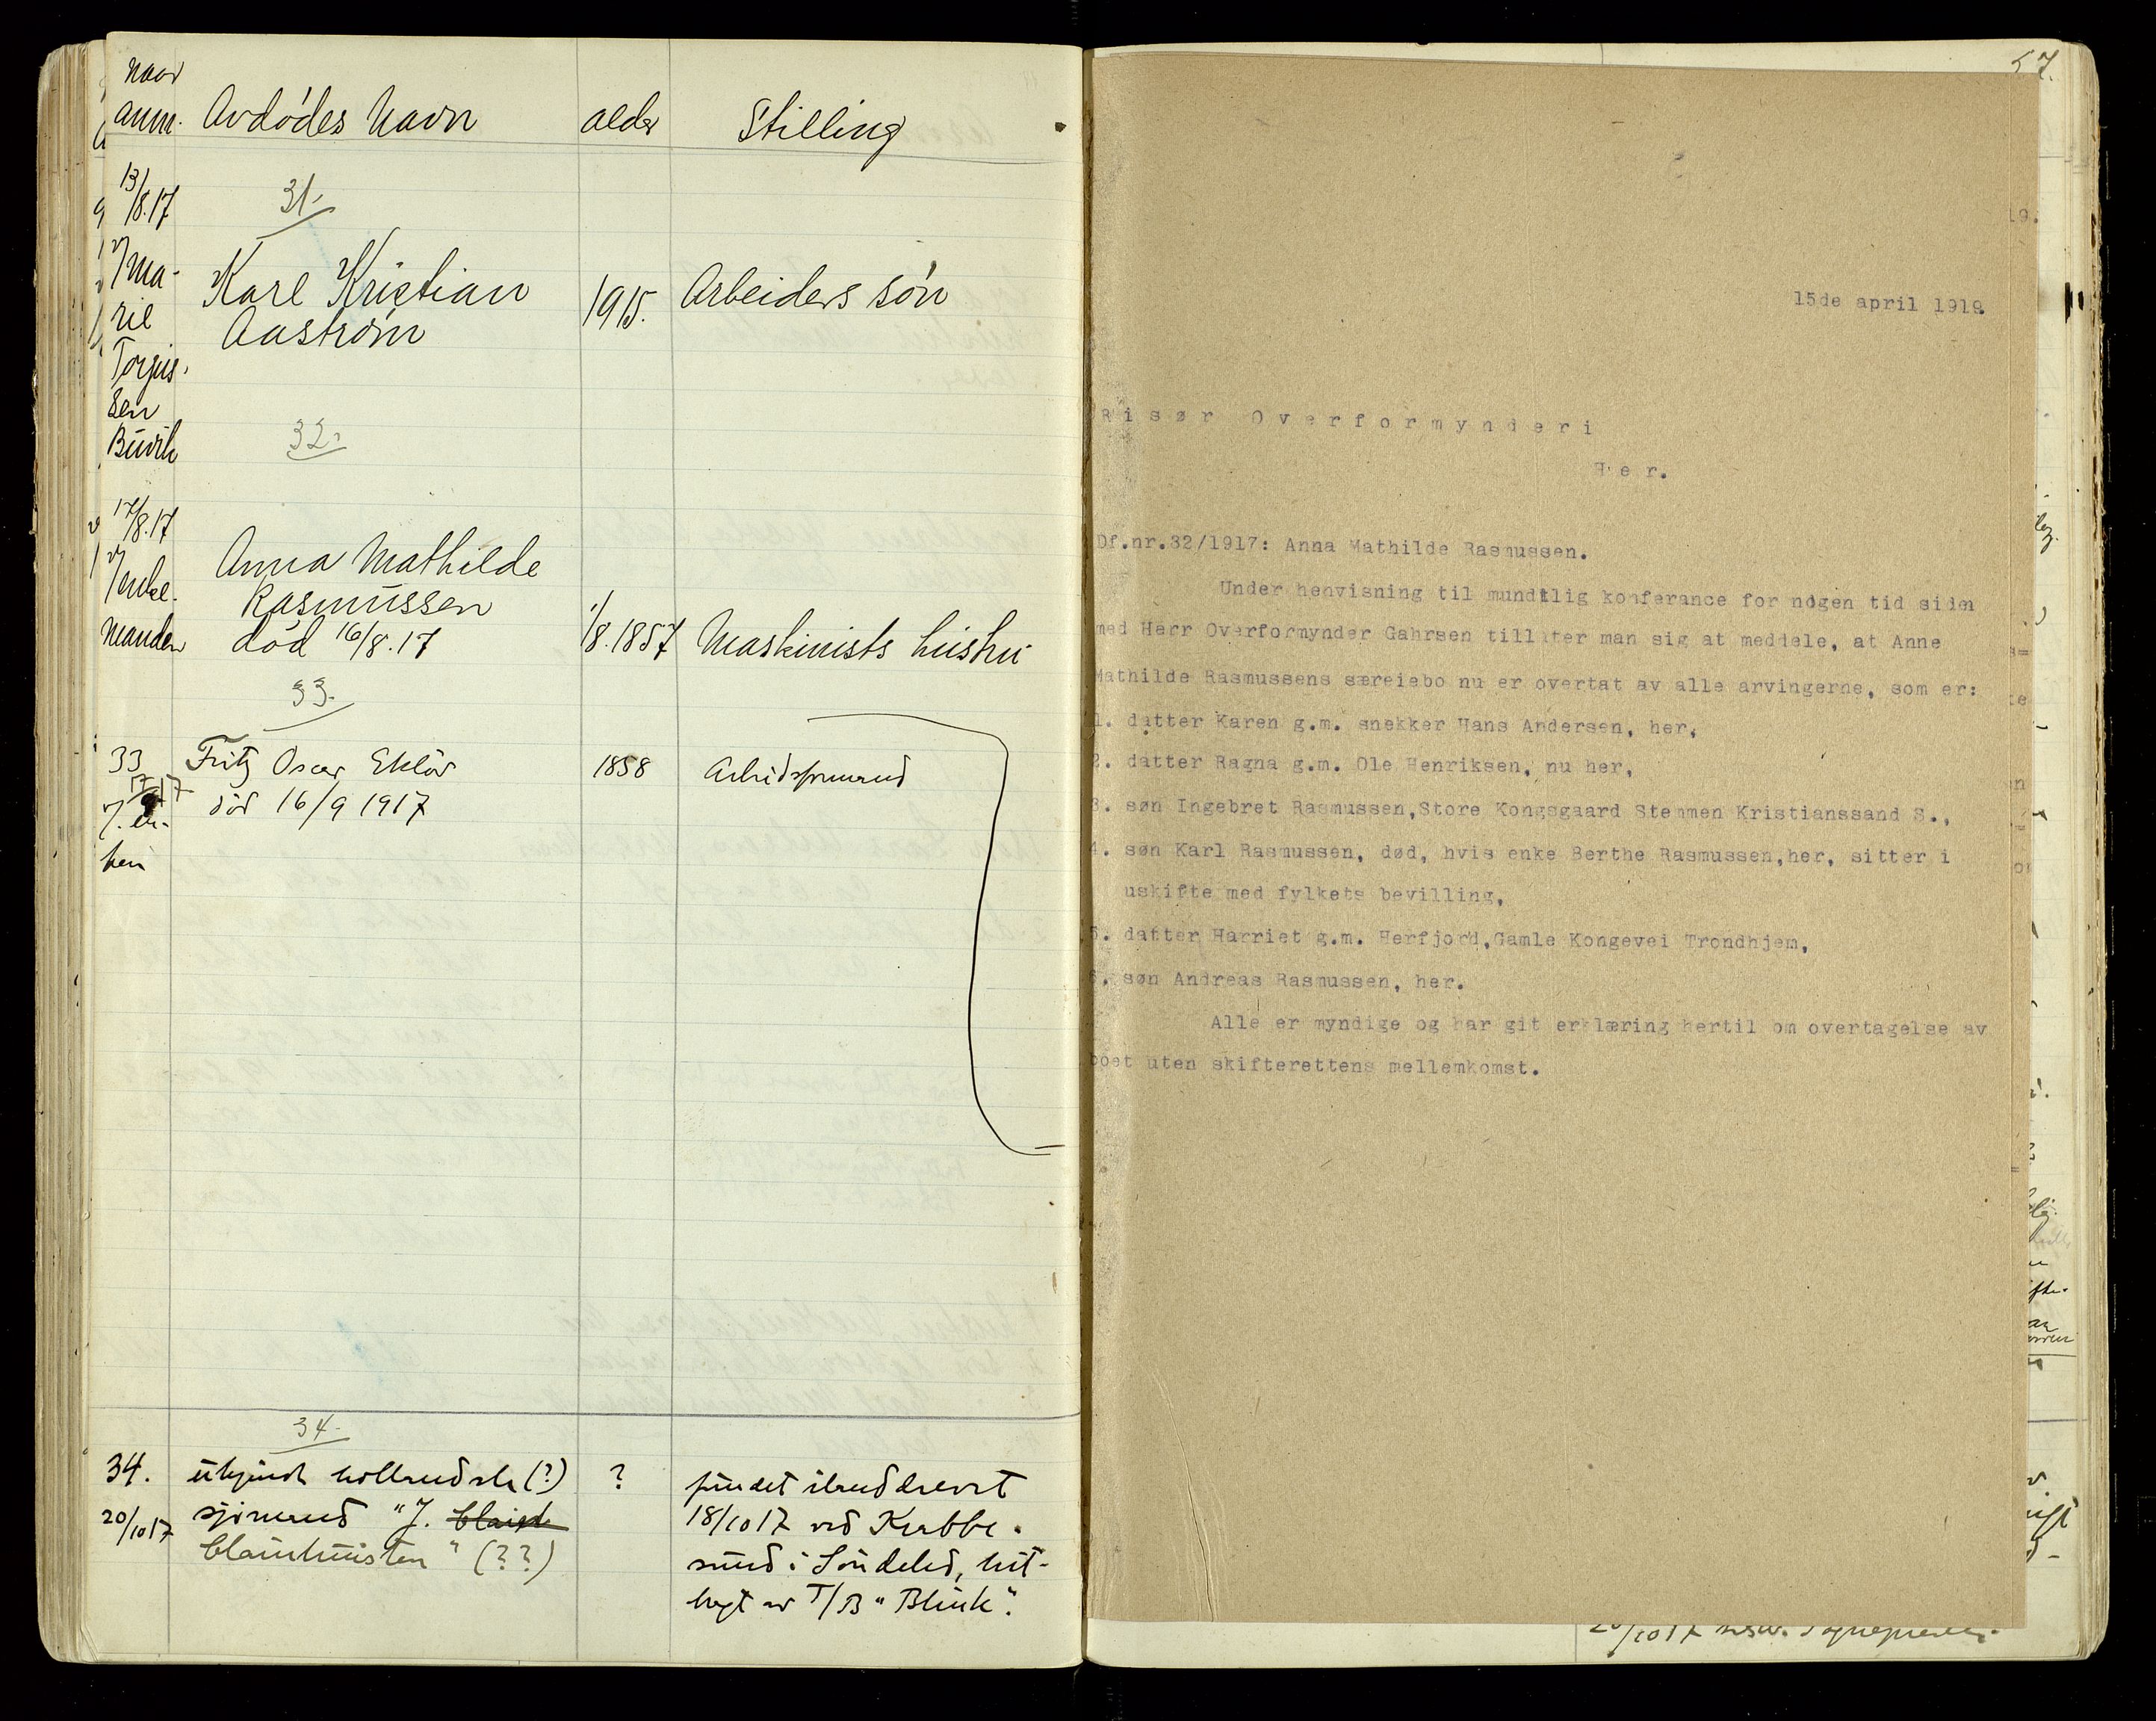 naar
anm. Avdødes Navn alder Stilling
31.
13/8.17
v/ Ma-
ril
Torjus-
sen
Buvik
Karl Kristian
Aastrøm
1915. Arbeiders søn
32.
17/8.17
v/ enke-
manden
Anna Mathilde
Rasmussen
død 16/8.17
1/8.1857 Maskinists hustru
33.
33
17/9 17
v. en-
ken
Fritz Oscar Eklöv
død 16/9 1917
1858 Arbeidsformand
34.
34.
20/10 17
ukjendt hollandsk (?)
sjømand "J.
(??)
?
fundet ilanddrevet
18/10 17 ved Krabbe-
sund i Søndeled, hit-
bragt av T/B "Blink".
57.
15de april 1919.
Risør Overformynderi
Her.
Df.nr.32/1917: Anna Mathilde Rasmussen.
Under henvisning til mundtlig konferance for nogen tid siden
med Herr Overformynder Gahrsen tillater man sig at meddele, at Anne
Mathilde Rasmussens særeiebo nu er overtat av alle arvingerne, som er:
1. datter Karen g.m. snekker Hans Andersen, her,
2. datter Ragna g.m. Ole Henriksen, nu her,
3. søn Ingebret Rasmussen,Store Kongsgaard Stemmen Kristianssand S.,
4. søn Karl Rasmussen, død, hvis enke Berthe Rasmussen,her, sitter i
uskifte med fylkets bevilling,
5. datter Harriet g.m. Herfjord,Gamle Kongevei Trondhjem,
6. søn Andreas Rasmussen, her.
Alle er myndige og har git erklæring hertil om overtagelse av
boet uten skifterettens mellemkomst.
20/10 17